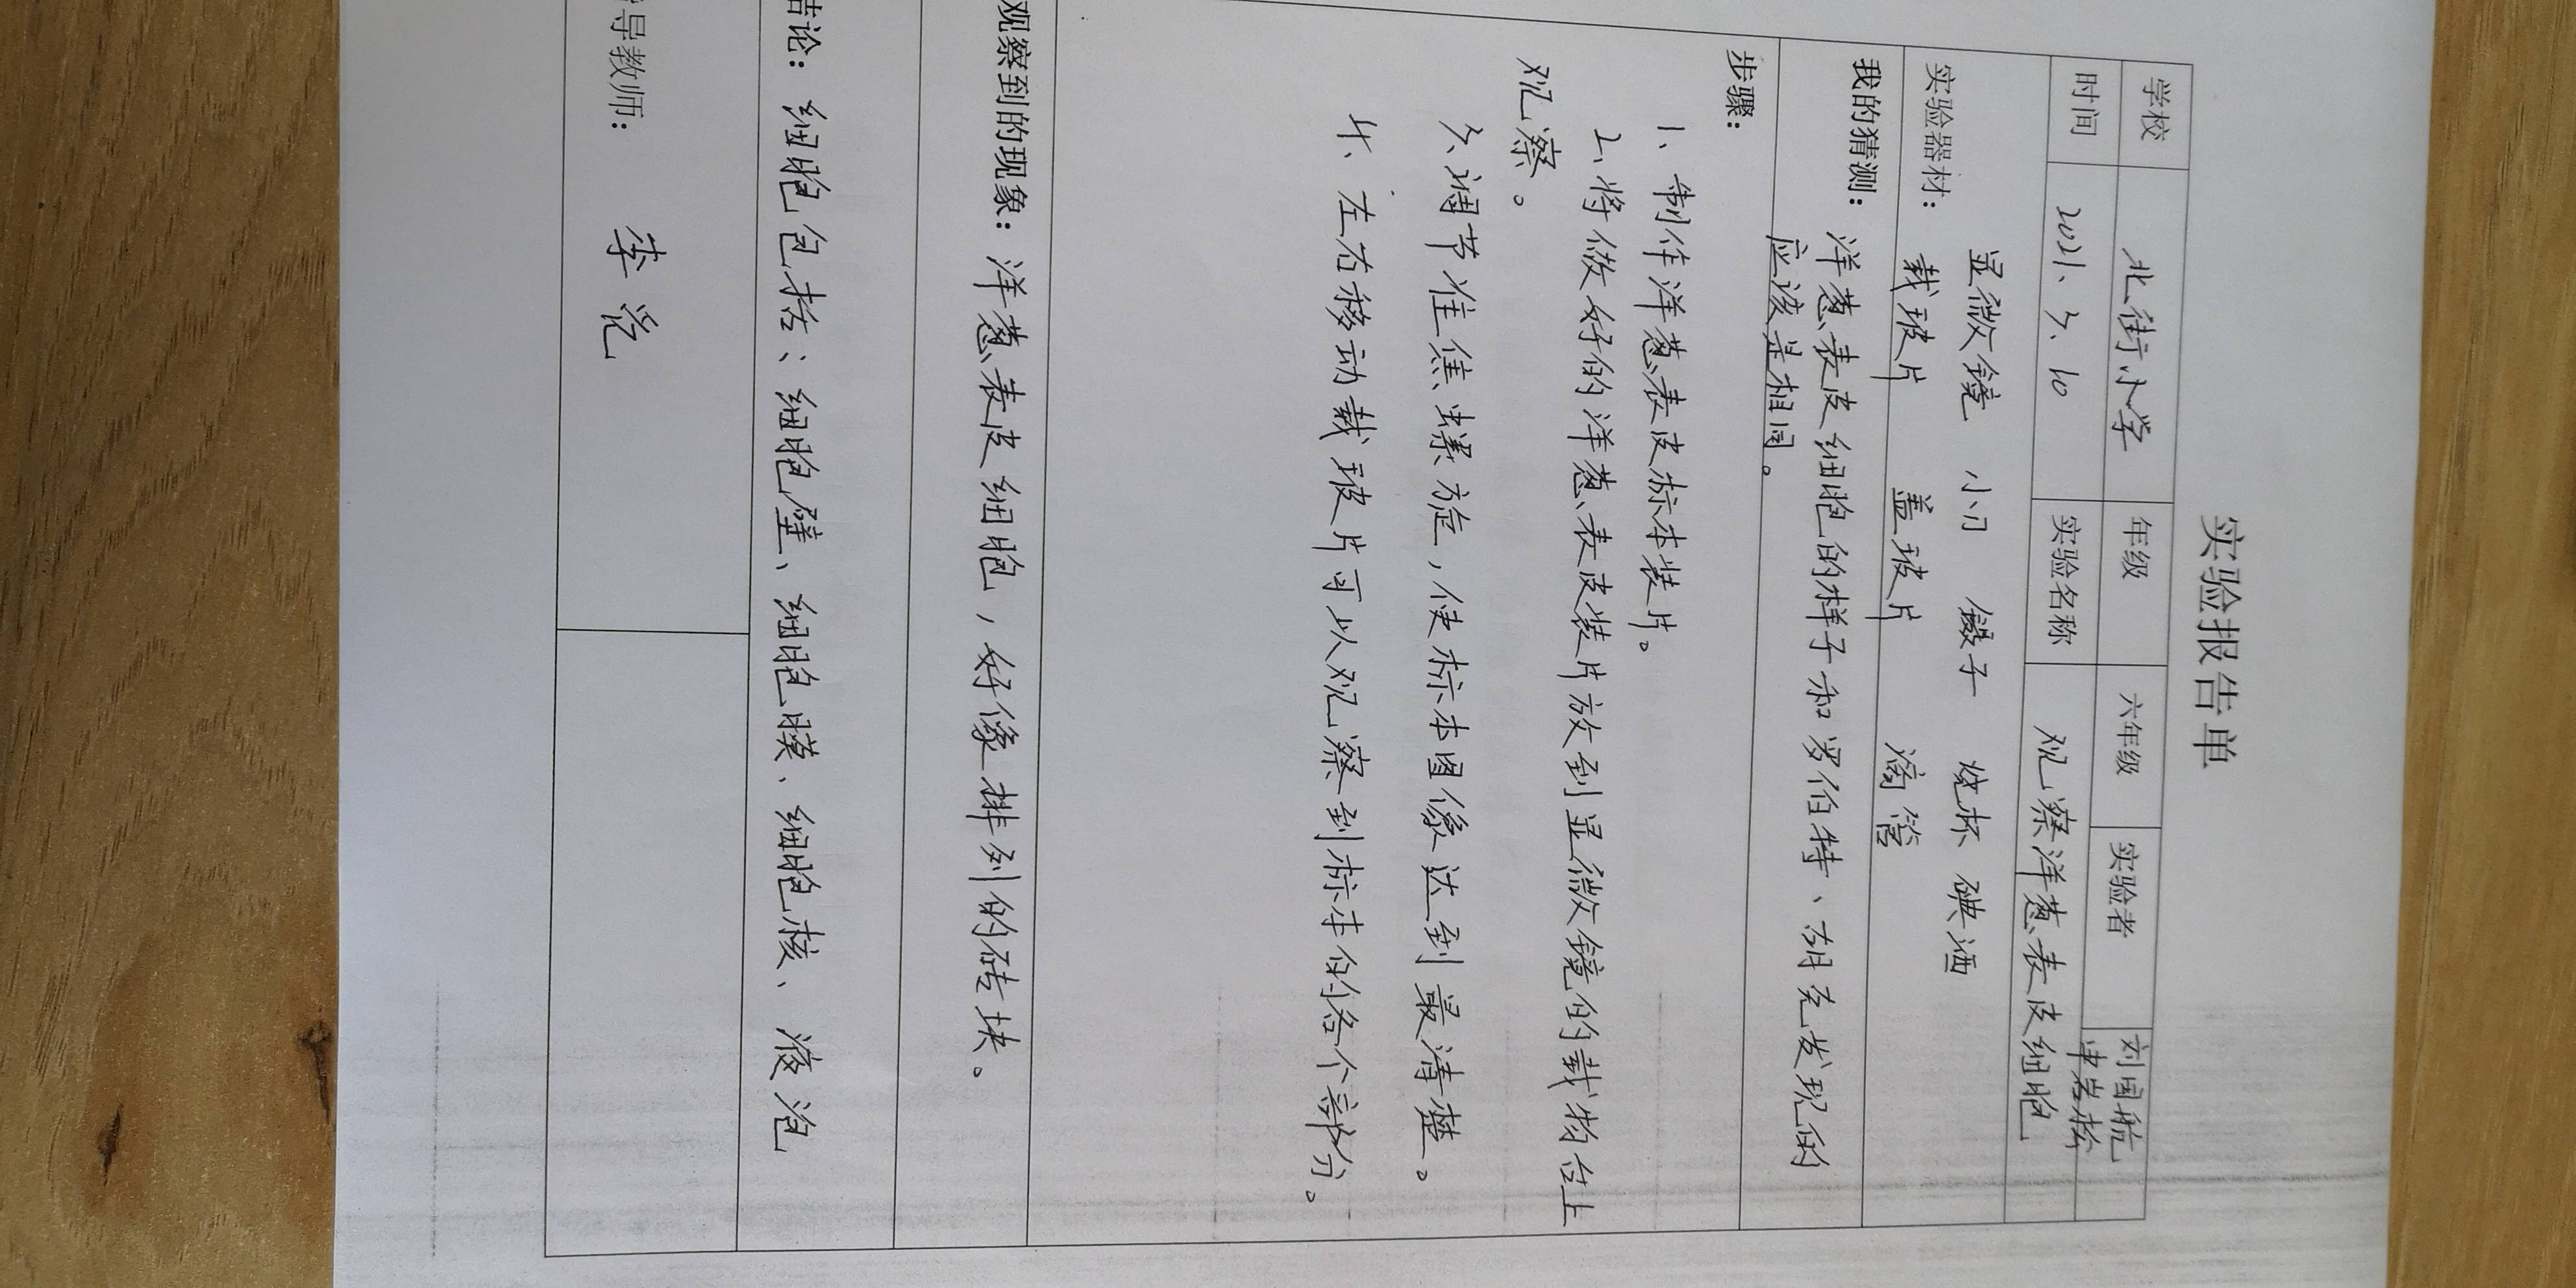 实验报告单
学校 北街小学 年级 六年级 实验者 刘国航 申岩松
时间 2021、3、10 实验名称 观察洋葱表皮细胞
实验器材： 显微镜 小刀 镊子 烧杯 碘酒
载玻片 盖玻片 滴管
我的猜测：洋葱表皮细胞的样子和罗伯特、胡克发现的
应该是相同。
步骤：
1、制作洋葱表皮标本装片。
2、将做好的洋葱表皮装片放到显微镜的载物台上
观察。
3、调节准焦螺旋，使标本图像达到最清楚。
4、左右移动载玻片可以观察到标本的各个部分。
观察到的现象：洋葱表皮细胞，好像排列的砖块。
结论：细胞包括：细胞壁、细胞膜、细胞核、液泡
导教师： 李